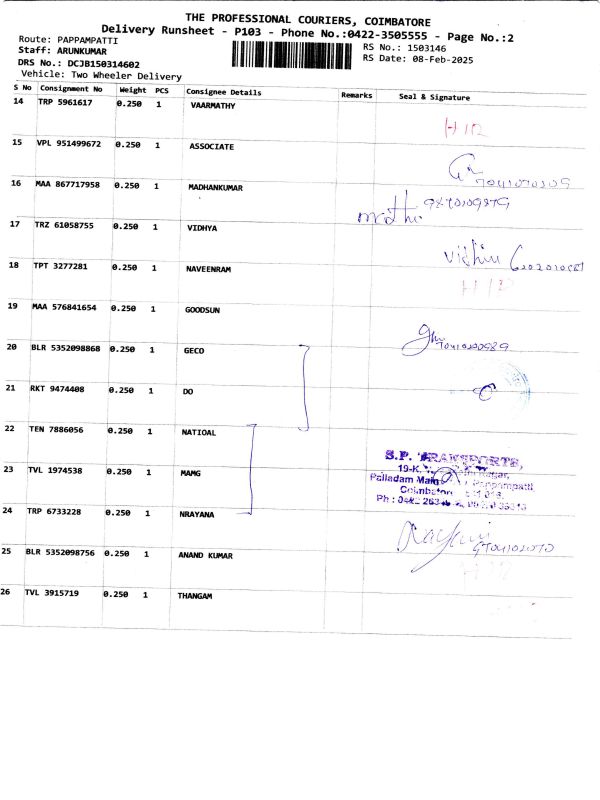 THE PROFESSIONAL COURIERS, COIMBATORE
Delivery Runsheet - P103 - Phone No.:0422-3505555 - Page No.:2
Route: PAPPAMPATTI
RS No.: 1503146
Staff: ARUNKUMAR
RS Date: 08-Feb-2025
DRS No.: DCJB150314602
Vehicle: Two Wheeler Delivery
S No Consignment No Weight PCS Consignee Details Remarks Seal & Signature
14 TRP 5961617 0.250 1 VAARMATHY
15 VPL 951499672 0.250 1 ASSOCIATE
16 MAA 867717958 0.250 1 MADHANKUMAR
17 TRZ 61058755 0.250 1 VIDHYA
18 TPT 3277281 0.250 1 NAVEENRAM
19 MAA 576841654 0.250 1 GOODSUN
20 BLR 5352098868 0.250 1 GECO
21 RKT 9474408 0.250 1 DO
22 TEN 7886056 0.250 1 NATIOAL
S.P. TRANSPORTS,
19-K.
23 TVL 1974538 0.250 1 MAMG
Palladam Main Pappampatti
Coimbatore
Ph : 0422
24 TRP 6733228 0.250 1 NRAYANA
25 BLR 5352098756 0.250 1 ANAND KUMAR
26 TVL 3915719 0.250 1 THANGAM